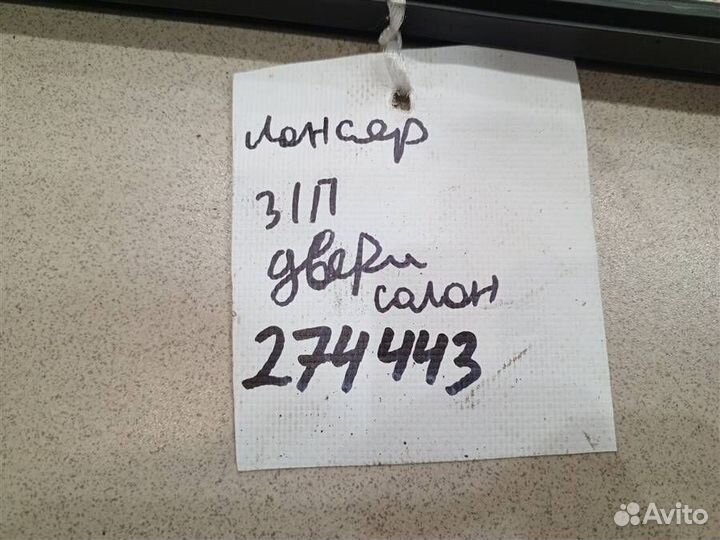 лансер
з/п
двери
салон
274443
Avito